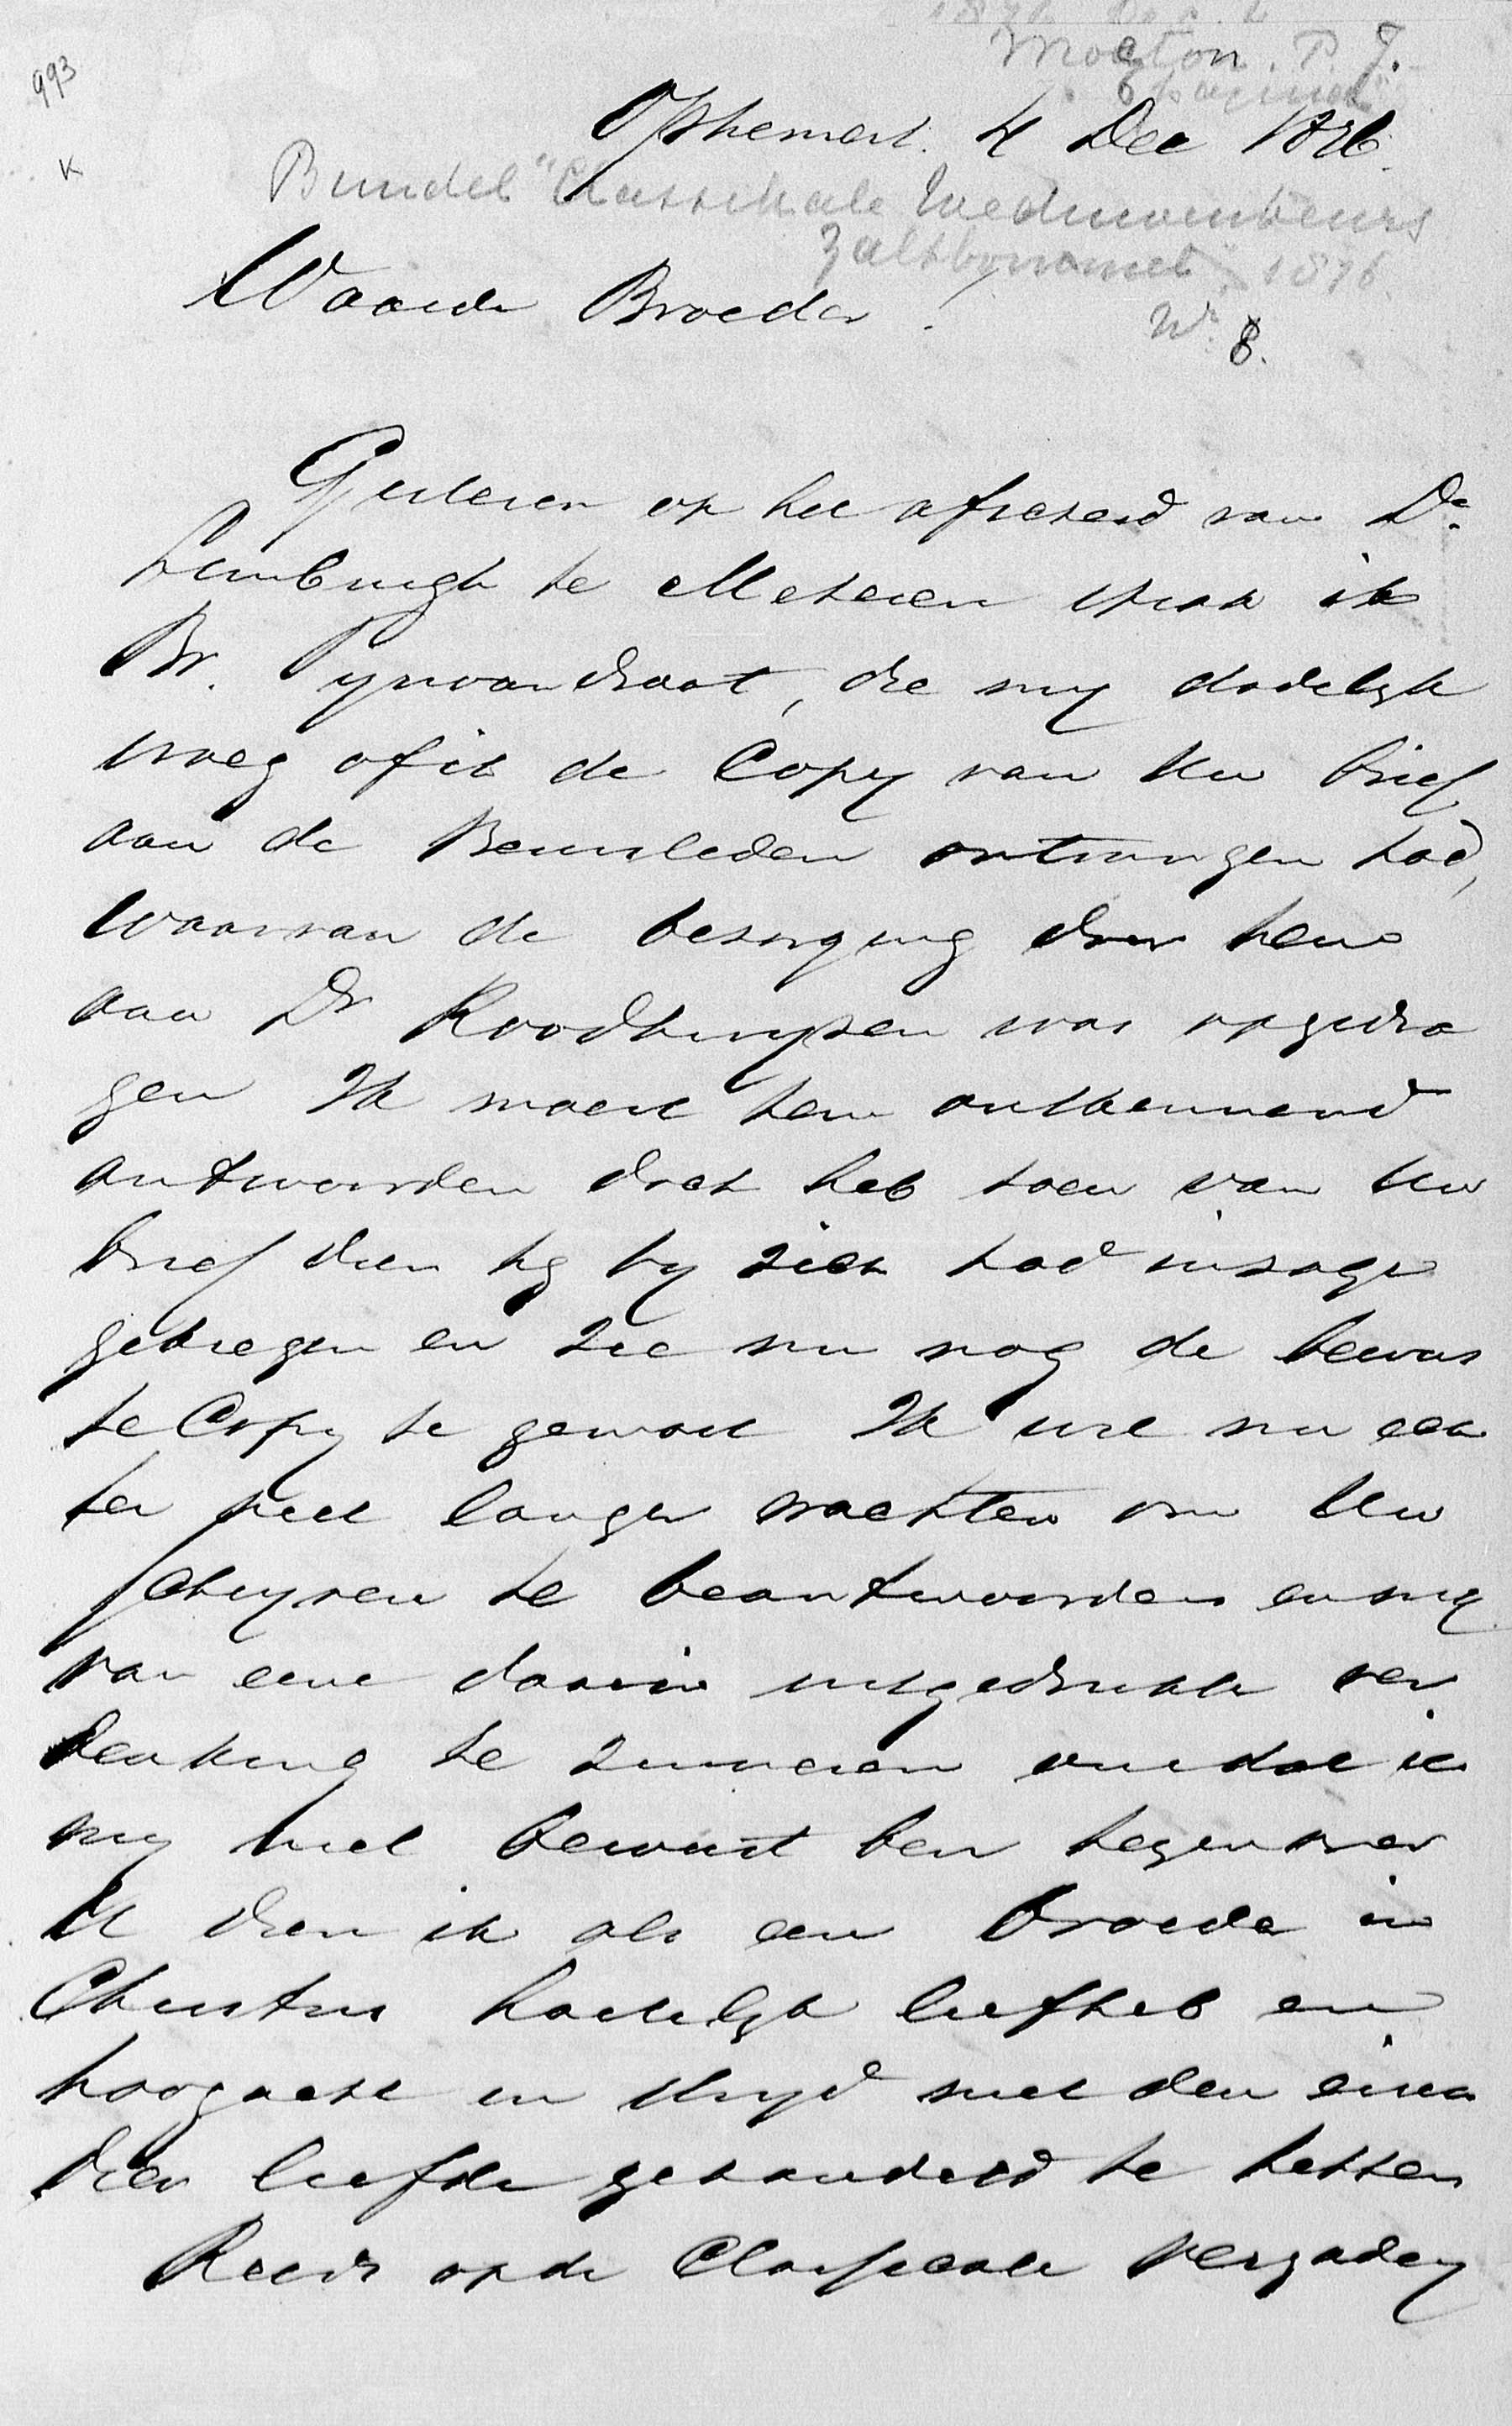 993
K
1876 Dec. 4
Moeton. P. J.
6 pagina's
Ophemert. 4 Dec 1876.
Bundel "Classikale Weduwenbeurs
Zaltbommel" 1876.
No. 8.
Waarde Broeder!
Gisteren op het afscheid van Ds.
Limburgh te Meteren sprak ik
Br. Pynvandraat, die my dadelyk
vroeg of ik de Copy van Uw brief
aan de Beursleden ontvangen had,
waarvan de bezorging door hem
aan Dr Roodhuyzen was opgedra
gen Ik moest hem ontkennend
antwoorden doch heb toen van Uw
brief dien hy by zich had inzage
gekregen en zie nu nog de bewus
te Copy te gemoet Ik wil nu ech
ter niet langer wachten om Uw
schryven te beantwoorden en my
van eene daarin uitgedrukte ver
denking te zuiveren omdat ik
my niet bewust ben tegenover
U dien ik als een broeder in
Christus hartelyk liefheb en
hoogacht in stryd met den eisch
dier liefde gehandeld te hebben
Reeds op de Classicale Vergaderg